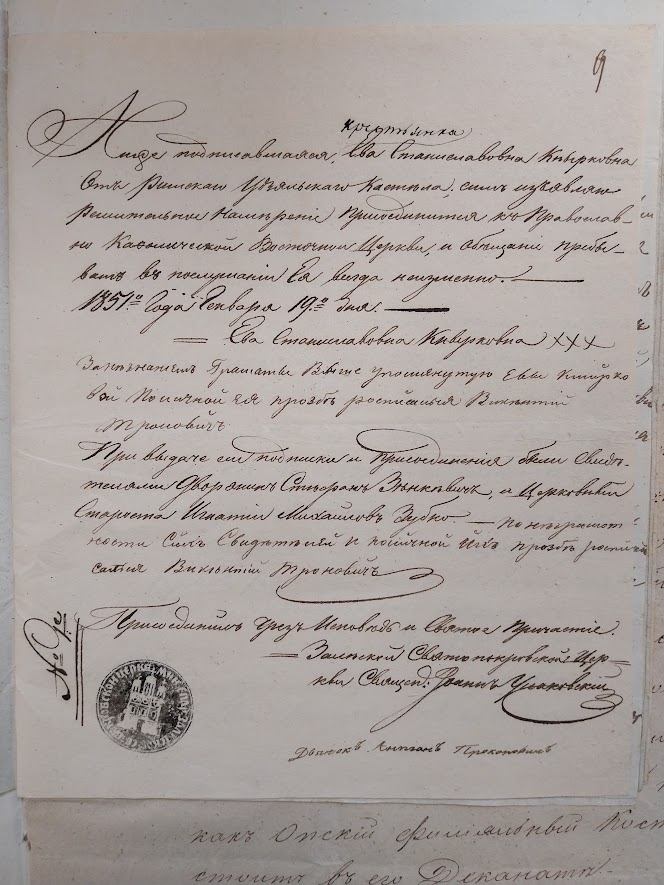 9
крестьянка
Ниже подписавшаяся, Ева Станиславовна Кнырковна
отъ Римскаго Костела, симъ изъявляю
решительное намѣреніе присоединится къ Православ-
но Каѳолической Восточной Церкви, и обещаю пребы-
вать въ послушаніи Ея всегда неизменно.
1851го Года Генваря 19го дня.
= Ева Станиславовна Кнырковна ХХХ
За незнаніемъ Грамоты выше упомянутую Евы Кнырко
вой по личной ея прозбѣ росписался Викентій
Троновичъ
При выдаче сей подписки и присоединенія были Свидѣ-
телями Дворянинъ Стефанъ Зенкевичъ, и Церковный
Староста Игнатій Михайловъ Зубко. — По неграмот-
ности сихъ Свидѣтелей и по личной ихъ прозбѣ роспи
сался Викентій Троновичъ
Присоединилъ чрезъ Исповѣдь и Святое Причастіе.
= Святопокровской Цер=
кви Священ: Іоаннъ
№ 9й
Дьячокъ Прокоповичъ
какъ Опскій филіальный Кост
стоитъ въ его Деканатѣ